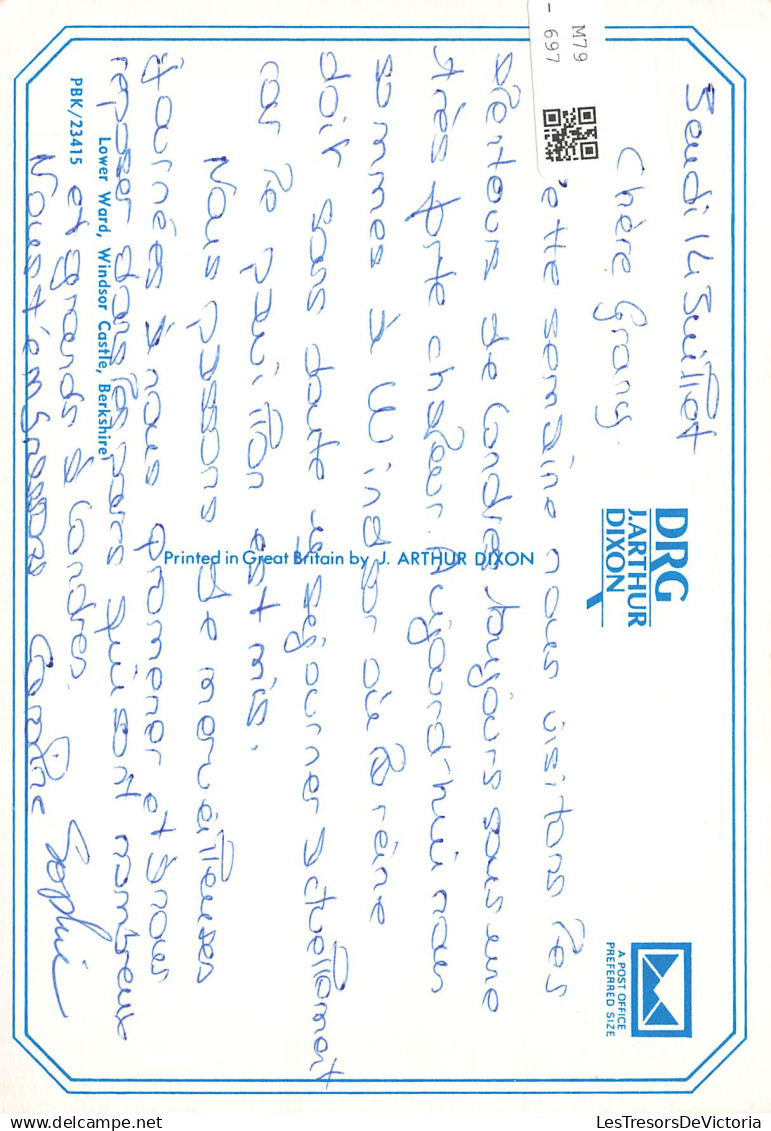 Jeudi 14 Juillet
Chère Grany
ette semaine nous visitons les
alentours de Londres toujours sous une
très forte chaleur. Aujourd'hui nous
sommes à Windsor où la reine
doit sans doute y séjourner actuellement
car le pavillon est mis.
Nous passons de merveilleuses
journées à nous promener et à nous
reposer dans les parcs qui sont nombreux
et grands à Londres.
Nous t'embrassons Caroline Sophie
DRG
J. ARTHUR
DIXON
A POST OFFICE
PREFERRED SIZE
Printed in Great Britain by J. ARTHUR DIXON
Lower Ward, Windsor Castle, Berkshire
PBK/23415
M79
- 697
LesTresorsDeVictoria